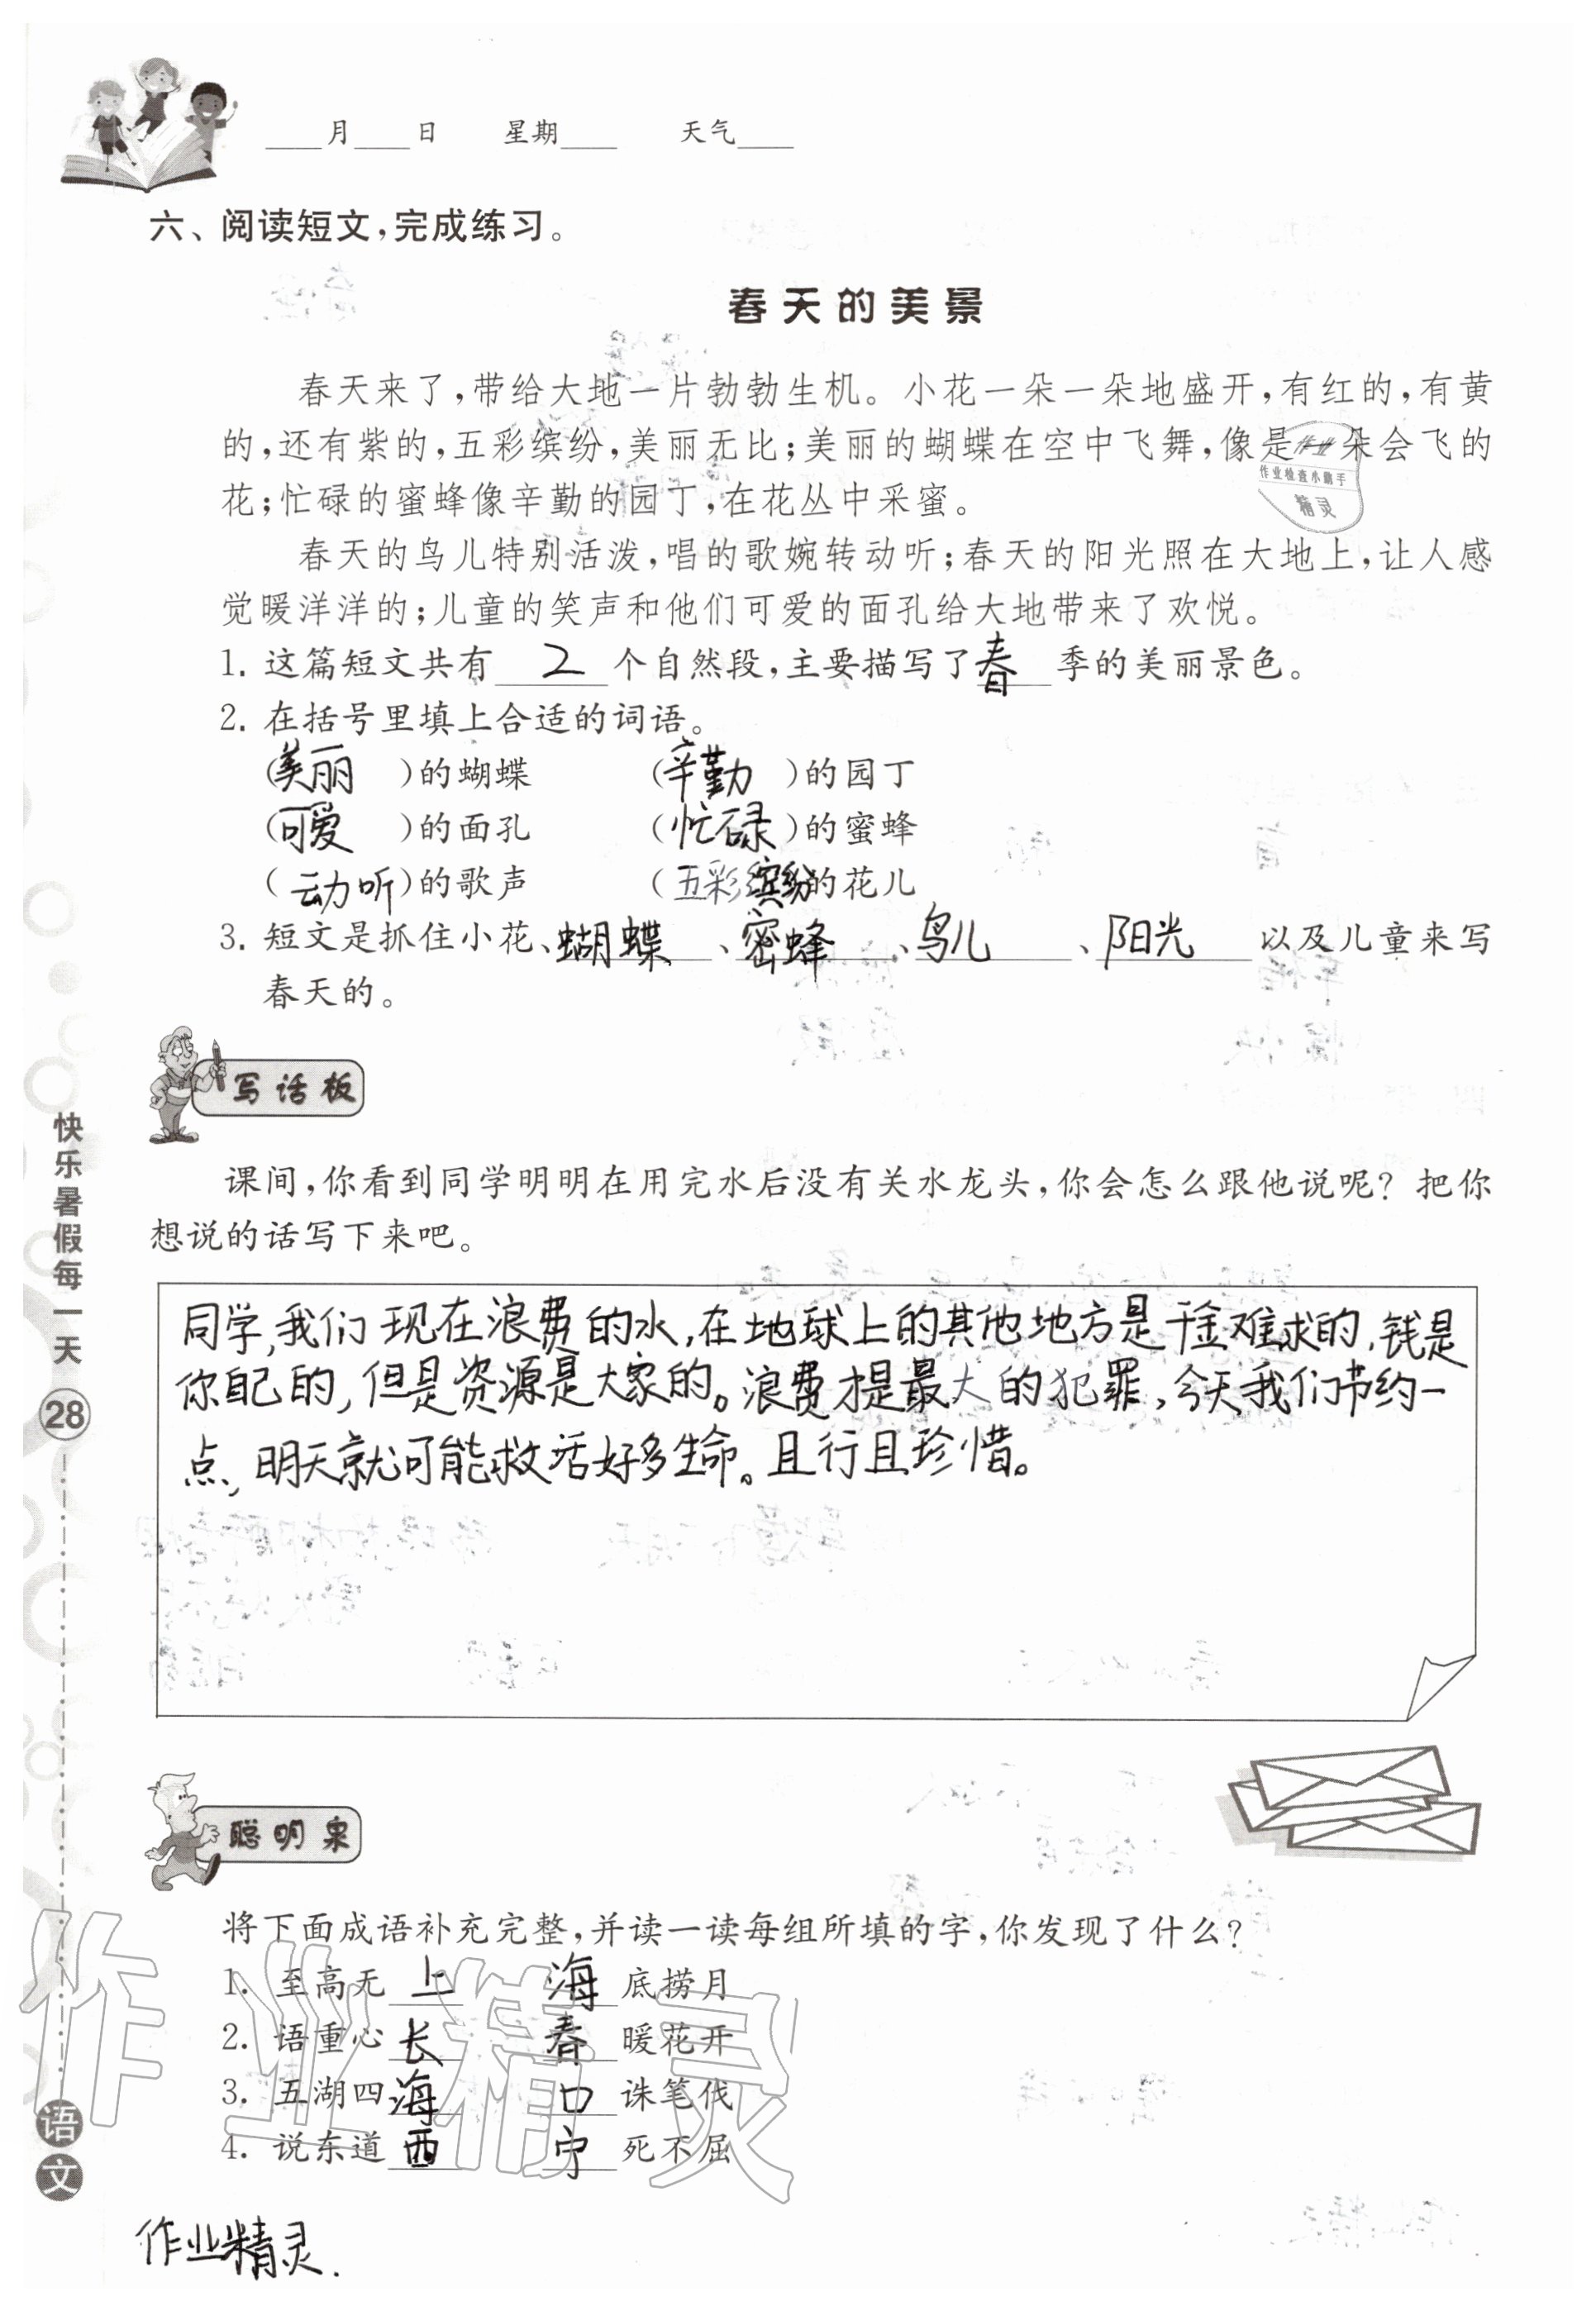 ____月____日 星期____ 天气____
六、阅读短文,完成练习。
春天的美景
春天来了,带给大地一片勃勃生机。小花一朵一朵地盛开,有红的,有黄
的,还有紫的,五彩缤纷,美丽无比;美丽的蝴蝶在空中飞舞,像是一朵会飞的
花;忙碌的蜜蜂像辛勤的园丁,在花丛中采蜜。
作业检查小助手
精灵
春天的鸟儿特别活泼,唱的歌婉转动听;春天的阳光照在大地上,让人感
觉暖洋洋的;儿童的笑声和他们可爱的面孔给大地带来了欢悦。
1. 这篇短文共有 2 个自然段,主要描写了春季的美丽景色。
2. 在括号里填上合适的词语。
(美丽 )的蝴蝶 (辛勤 )的园丁
(可爱 )的面孔 (忙碌 )的蜜蜂
(动听)的歌声 (五彩缤纷的花儿
3. 短文是抓住小花、蝴蝶、密蜂、鸟儿、阳光 以及儿童来写
春天的。
写话板
课间,你看到同学明明在用完水后没有关水龙头,你会怎么跟他说呢?把你
想说的话写下来吧。
同学,我们现在浪费的水,在地球上的其他地方是千金难求的,钱是
你自己的,但是资源是大家的。浪费才是最大的犯罪,今天我们节约一
点,明天就可能救活好多生命。且行且珍惜。
聪明泉
将下面成语补充完整,并读一读每组所填的字,你发现了什么?
1. 至高无 上 海 底捞月
2. 语重心 长 春 暖花开
3. 五湖四 海 口 诛笔伐
4. 说东道 西 宁 死不屈
快乐暑假每一天
28
语文
作业精灵
作业精灵.